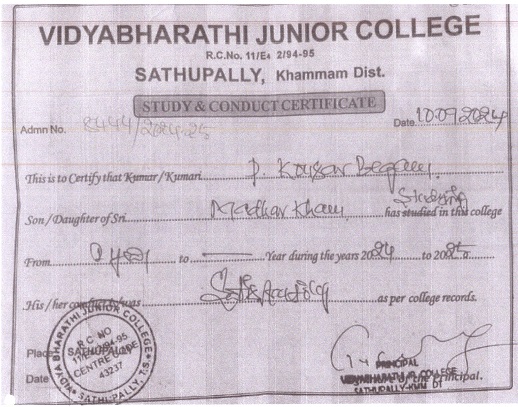 VIDYABHARATHI JUNIOR COLLEGE
R.C.No. 11/E4 2/94-95
SATHUPALLY, Khammam Dist.
STUDY & CONDUCT CERTIFICATE
Admn No. 8444/2024-25 Date 10.09.2024
This is to Certify that Kumar / Kumari P. Kousar Begam
Studying
Son / Daughter of Sri Madhar Khan has studied in this college
From I year to — Year during the years 2024 to 2025
His / her conduct was Satisfactory as per college records.
Place SATHUPALLY
Date
VIDYA BHARATHI JUNIOR COLLEGE
R.C. NO
11/E4/2/94-95
CENTRE CODE
43237
SATHUPALLY, T.S.
PRINCIPAL
Principal.
VIDYABHARATHI JR. COLLEGE
SATHUPALLY-KMM DT